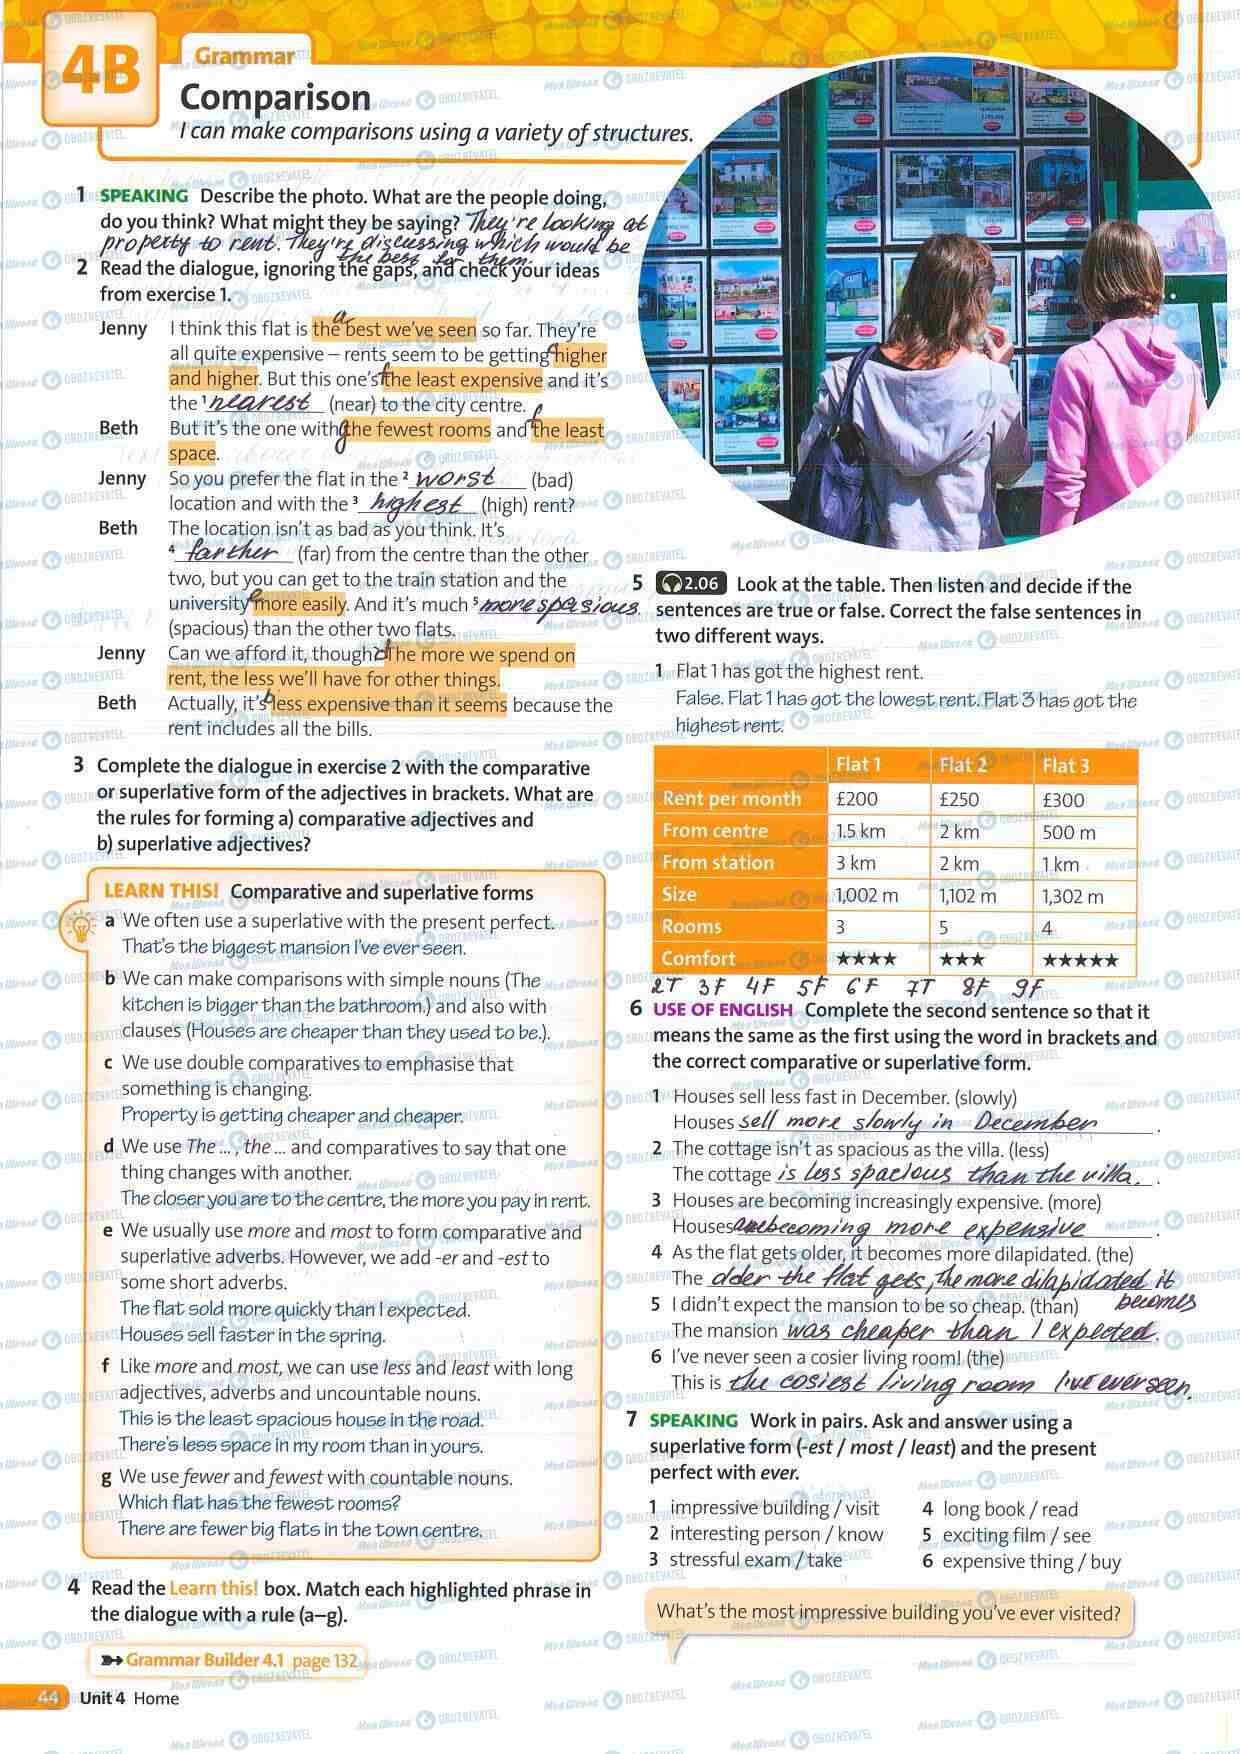 4B
Grammar
Comparison
I can make comparisons using a variety of structures.
1 SPEAKING Describe the photo. What are the people doing,
do you think? What might they be saying? They're looking at
property to rent. They're discussing which would be
the best for them.
2 Read the dialogue, ignoring the gaps, and check your ideas
from exercise 1.
a
Jenny I think this flat is the best we've seen so far. They're
all quite expensive – rents seem to be getting c higher
and higher. But this one's f the least expensive and it's
the 1 nearest (near) to the city centre.
Beth But it's the one with g the fewest rooms and f the least
space.
Jenny So you prefer the flat in the 2 worst (bad)
location and with the 3 highest (high) rent?
Beth The location isn't as bad as you think. It's
4 farther (far) from the centre than the other
two, but you can get to the train station and the
university e more easily. And it's much 5 more spasious
(spacious) than the other two flats.
Jenny Can we afford it, though? d The more we spend on
rent, the less we'll have for other things.
Beth Actually, it's b less expensive than it seems because the
rent includes all the bills.
3 Complete the dialogue in exercise 2 with the comparative
or superlative form of the adjectives in brackets. What are
the rules for forming a) comparative adjectives and
b) superlative adjectives?
LEARN THIS! Comparative and superlative forms
a We often use a superlative with the present perfect.
That's the biggest mansion I've ever seen.
b We can make comparisons with simple nouns (The
kitchen is bigger than the bathroom.) and also with
clauses (Houses are cheaper than they used to be.).
c We use double comparatives to emphasise that
something is changing.
Property is getting cheaper and cheaper.
d We use The … , the … and comparatives to say that one
thing changes with another.
The closer you are to the centre, the more you pay in rent.
e We usually use more and most to form comparative and
superlative adverbs. However, we add -er and -est to
some short adverbs.
The flat sold more quickly than I expected.
Houses sell faster in the spring.
f Like more and most, we can use less and least with long
adjectives, adverbs and uncountable nouns.
This is the least spacious house in the road.
There's less space in my room than in yours.
g We use fewer and fewest with countable nouns.
Which flat has the fewest rooms?
There are fewer big flats in the town centre.
4 Read the Learn this! box. Match each highlighted phrase in
the dialogue with a rule (a–g).
Grammar Builder 4.1 page 132
44 Unit 4 Home
5 2.06 Look at the table. Then listen and decide if the
sentences are true or false. Correct the false sentences in
two different ways.
1 Flat 1 has got the highest rent.
False. Flat 1 has got the lowest rent. Flat 3 has got the
highest rent.
Flat 1 Flat 2 Flat 3
Rent per month £200 £250 £300
From centre 1.5 km 2 km 500 m
From station 3 km 2 km 1 km
Size 1,002 m 1,102 m 1,302 m
Rooms 3 5 4
Comfort ★★★★ ★★★ ★★★★★
2T 3F 4F 5F 6F 7T 8F 9F
6 USE OF ENGLISH Complete the second sentence so that it
means the same as the first using the word in brackets and
the correct comparative or superlative form.
1 Houses sell less fast in December. (slowly)
Houses sell more slowly in December.
2 The cottage isn't as spacious as the villa. (less)
The cottage is less spacious than the villa.
3 Houses are becoming increasingly expensive. (more)
Houses are becoming more expensive.
4 As the flat gets older, it becomes more dilapidated. (the)
The older the flat gets, the more dilapidated it
becomes
5 I didn't expect the mansion to be so cheap. (than)
The mansion was cheaper than I expected.
6 I've never seen a cosier living room! (the)
This is the cosiest living room I've ever seen.
7 SPEAKING Work in pairs. Ask and answer using a
superlative form (-est / most / least) and the present
perfect with ever.
1 impressive building / visit
2 interesting person / know
3 stressful exam / take
4 long book / read
5 exciting film / see
6 expensive thing / buy
What's the most impressive building you've ever visited?
Моя Школа OBOZREVATEL